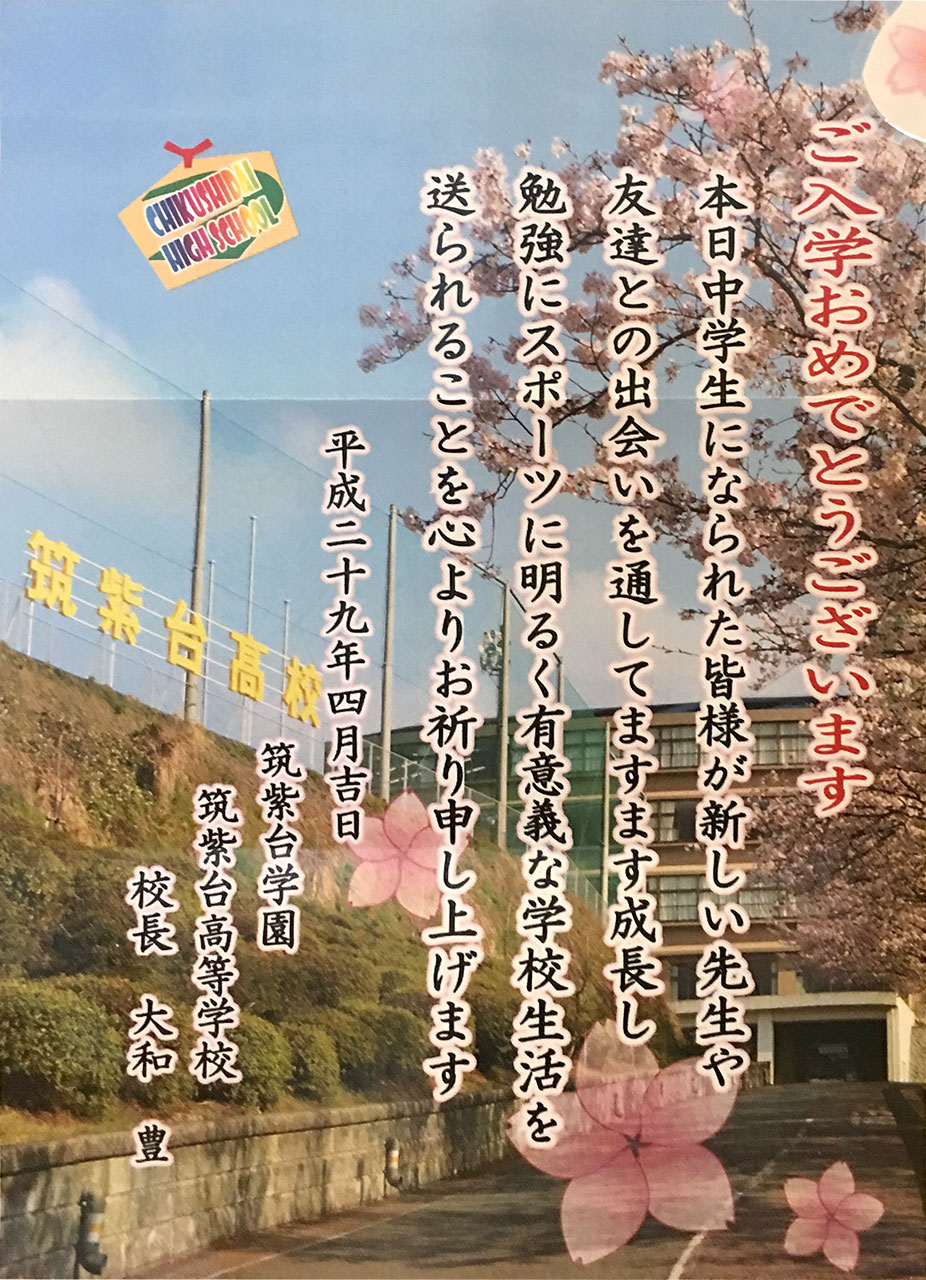 ご入学おめでとうございます
本日中学生になられた皆様が新しい先生や
友達との出会いを通してますます成長し
勉強にスポーツに明るく有意義な学校生活を
送られることを心よりお祈り申し上げます
平成二十九年四月吉日
筑紫台学園
筑紫台高等学校
校長 大和 豊
CHIKUSHIDAI
HIGH SCHOOL
筑紫台高校